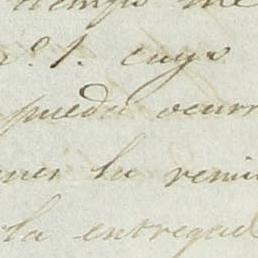 tiempo me
nº. 1. cuyo
pueda ocurr
ner la remi
la entregad